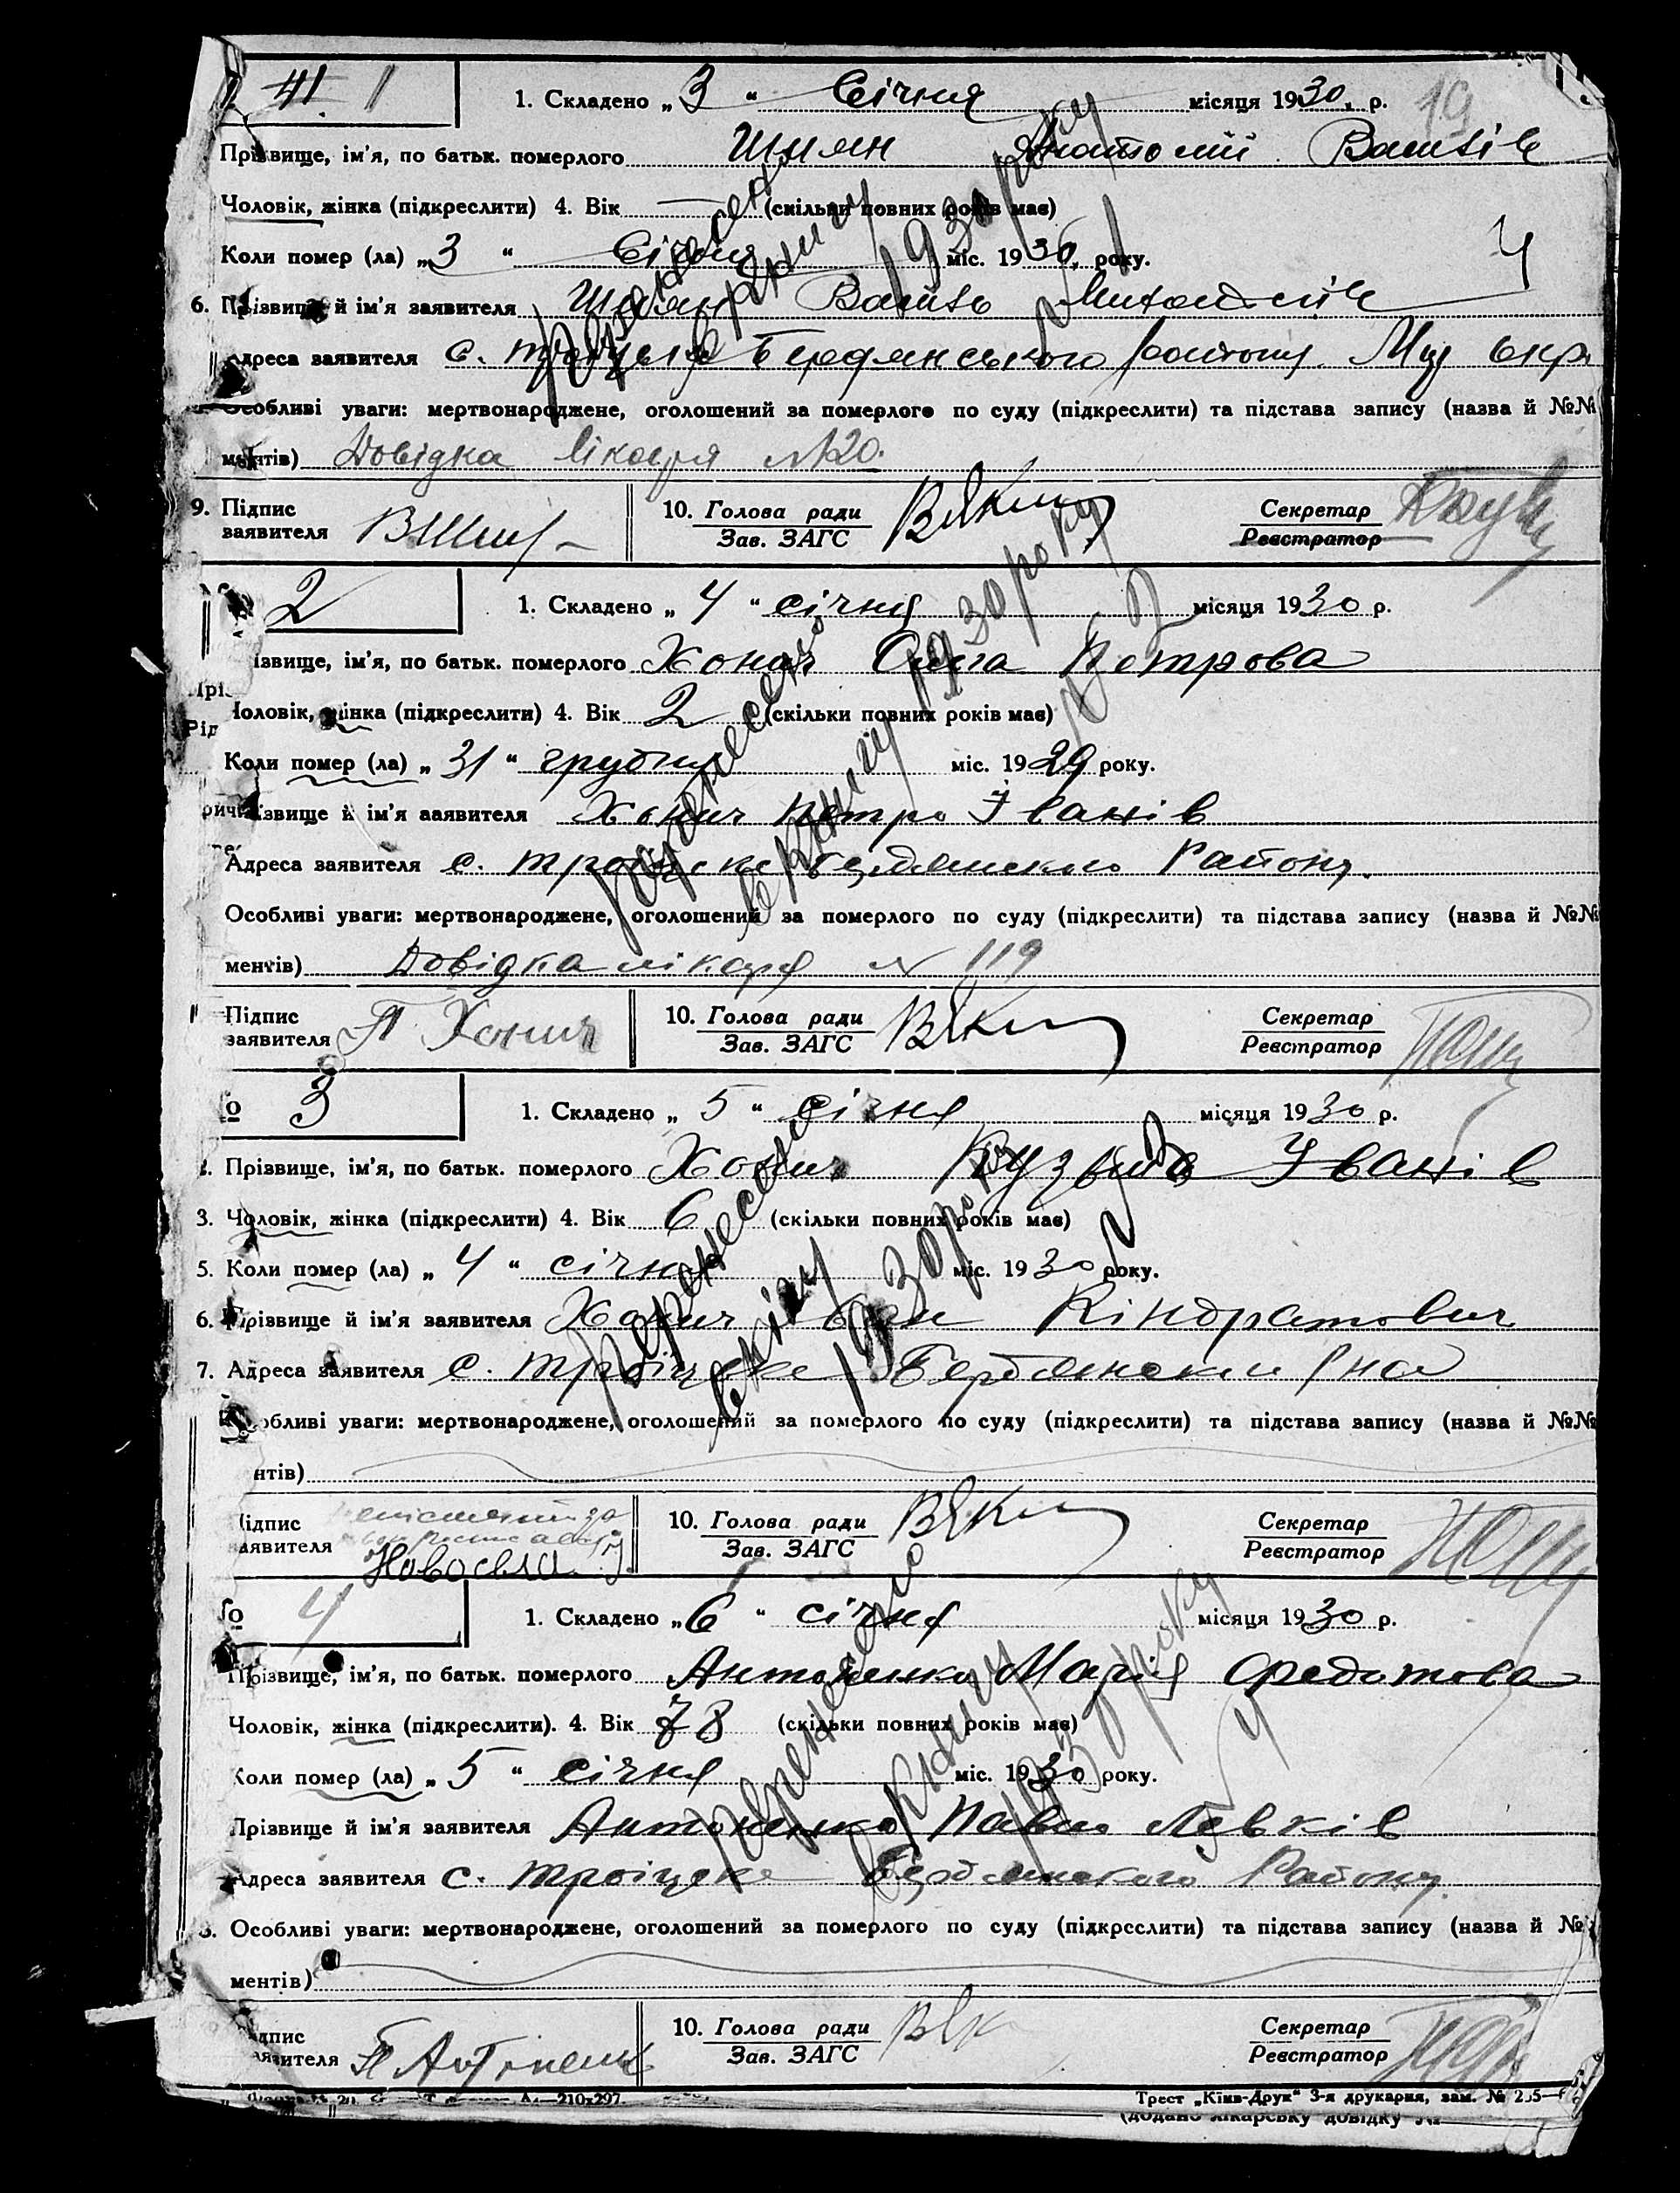 1
1. Складено „ 3 “ Січня місяця 1930 р.
19
Прізвище, ім'я, по батьк. померлого Шиян Анатолій
Чоловік, жінка (підкреслити) 4. Вік — (скільки повних років має)
Коли помер (ла) „ 3 “ Січня міс. 1930, року.
6. Прізвище й ім'я заявителя Шиян
Адреса заявителя с. Троїцьке Бердянського району
Особливі уваги: мертвонароджене, оголошений за померлого по суду (підкреслити) та підстава запису (назва й №№
ментів) Довідка лікаря №120.
9. Підпис
заявителя
10. Голова ради
Зав. ЗАГС
Секретар
Реєстратор
Перенесено
в книгу 1930 року
№ 1
2
1. Складено „ 4 “ січня місяця 1930 р.
ізвище, ім'я, по батьк. померлого Хонич Ольга Петрова
Чоловік, жінка (підкреслити) 4. Вік 2 (скільки повних років має)
Коли помер (ла) „ 31 “ грудня міс. 1929 року.
ізвище й ім'я заявителя Хонич Петро Іванів
Адреса заявителя с. Троїцьке Бердянського Району.
Особливі уваги: мертвонароджене, оголошений за померлого по суду (підкреслити) та підстава запису (назва й №№
ментів) Довідка лікаря № 119
Підпис
заявителя П Хонич
10. Голова ради
Зав. ЗАГС
Секретар
Реєстратор
Перенесено
в книгу 1930 року
№ 2
№ 3
1. Складено „ 5 “ січня місяця 1930 р.
2. Прізвище, ім'я, по батьк. померлого Хонич Кузьма Іванів
3. Чоловік, жінка (підкреслити) 4. Вік 6 (скільки повних років має)
5. Коли помер (ла) „ 4 “ січня міс. 1930 року.
6. Прізвище й ім'я заявителя Хонич Іван Кіндратович
7. Адреса заявителя с. Троїцьке Бердянського
Особливі уваги: мертвонароджене, оголошений за померлого по суду (підкреслити) та підстава запису (назва й №№
нтів)
Підпис
заявителя
10. Голова ради
Зав. ЗАГС
Секретар
Реєстратор
Перенесено
в книгу
1930 року
№ 4
1. Складено „ 6 “ січня місяця 1930 р.
Прізвище, ім'я, по батьк. померлого Антоненко Марія Федотова
Чоловік, жінка (підкреслити). 4. Вік 78 (скільки повних років має)
Коли помер (ла) „ 5 “ січня міс. 1930 року.
Прізвище й ім'я заявителя Антоненко Павло Левків
Адреса заявителя с. Троїцьке Бердянського Району.
Особливі уваги: мертвонароджене, оголошений за померлого по суду (підкреслити) та підстава запису (назва й №
ментів)
дпис
заявителя П Антоненко
10. Голова ради
Зав. ЗАГС
Секретар
Реєстратор
Перенесено
в книгу
1930 року
№ 4
210х297.
Трест „Київ-Друк“ 3-я друкарня, зам. №
(додано лікарську довідку №